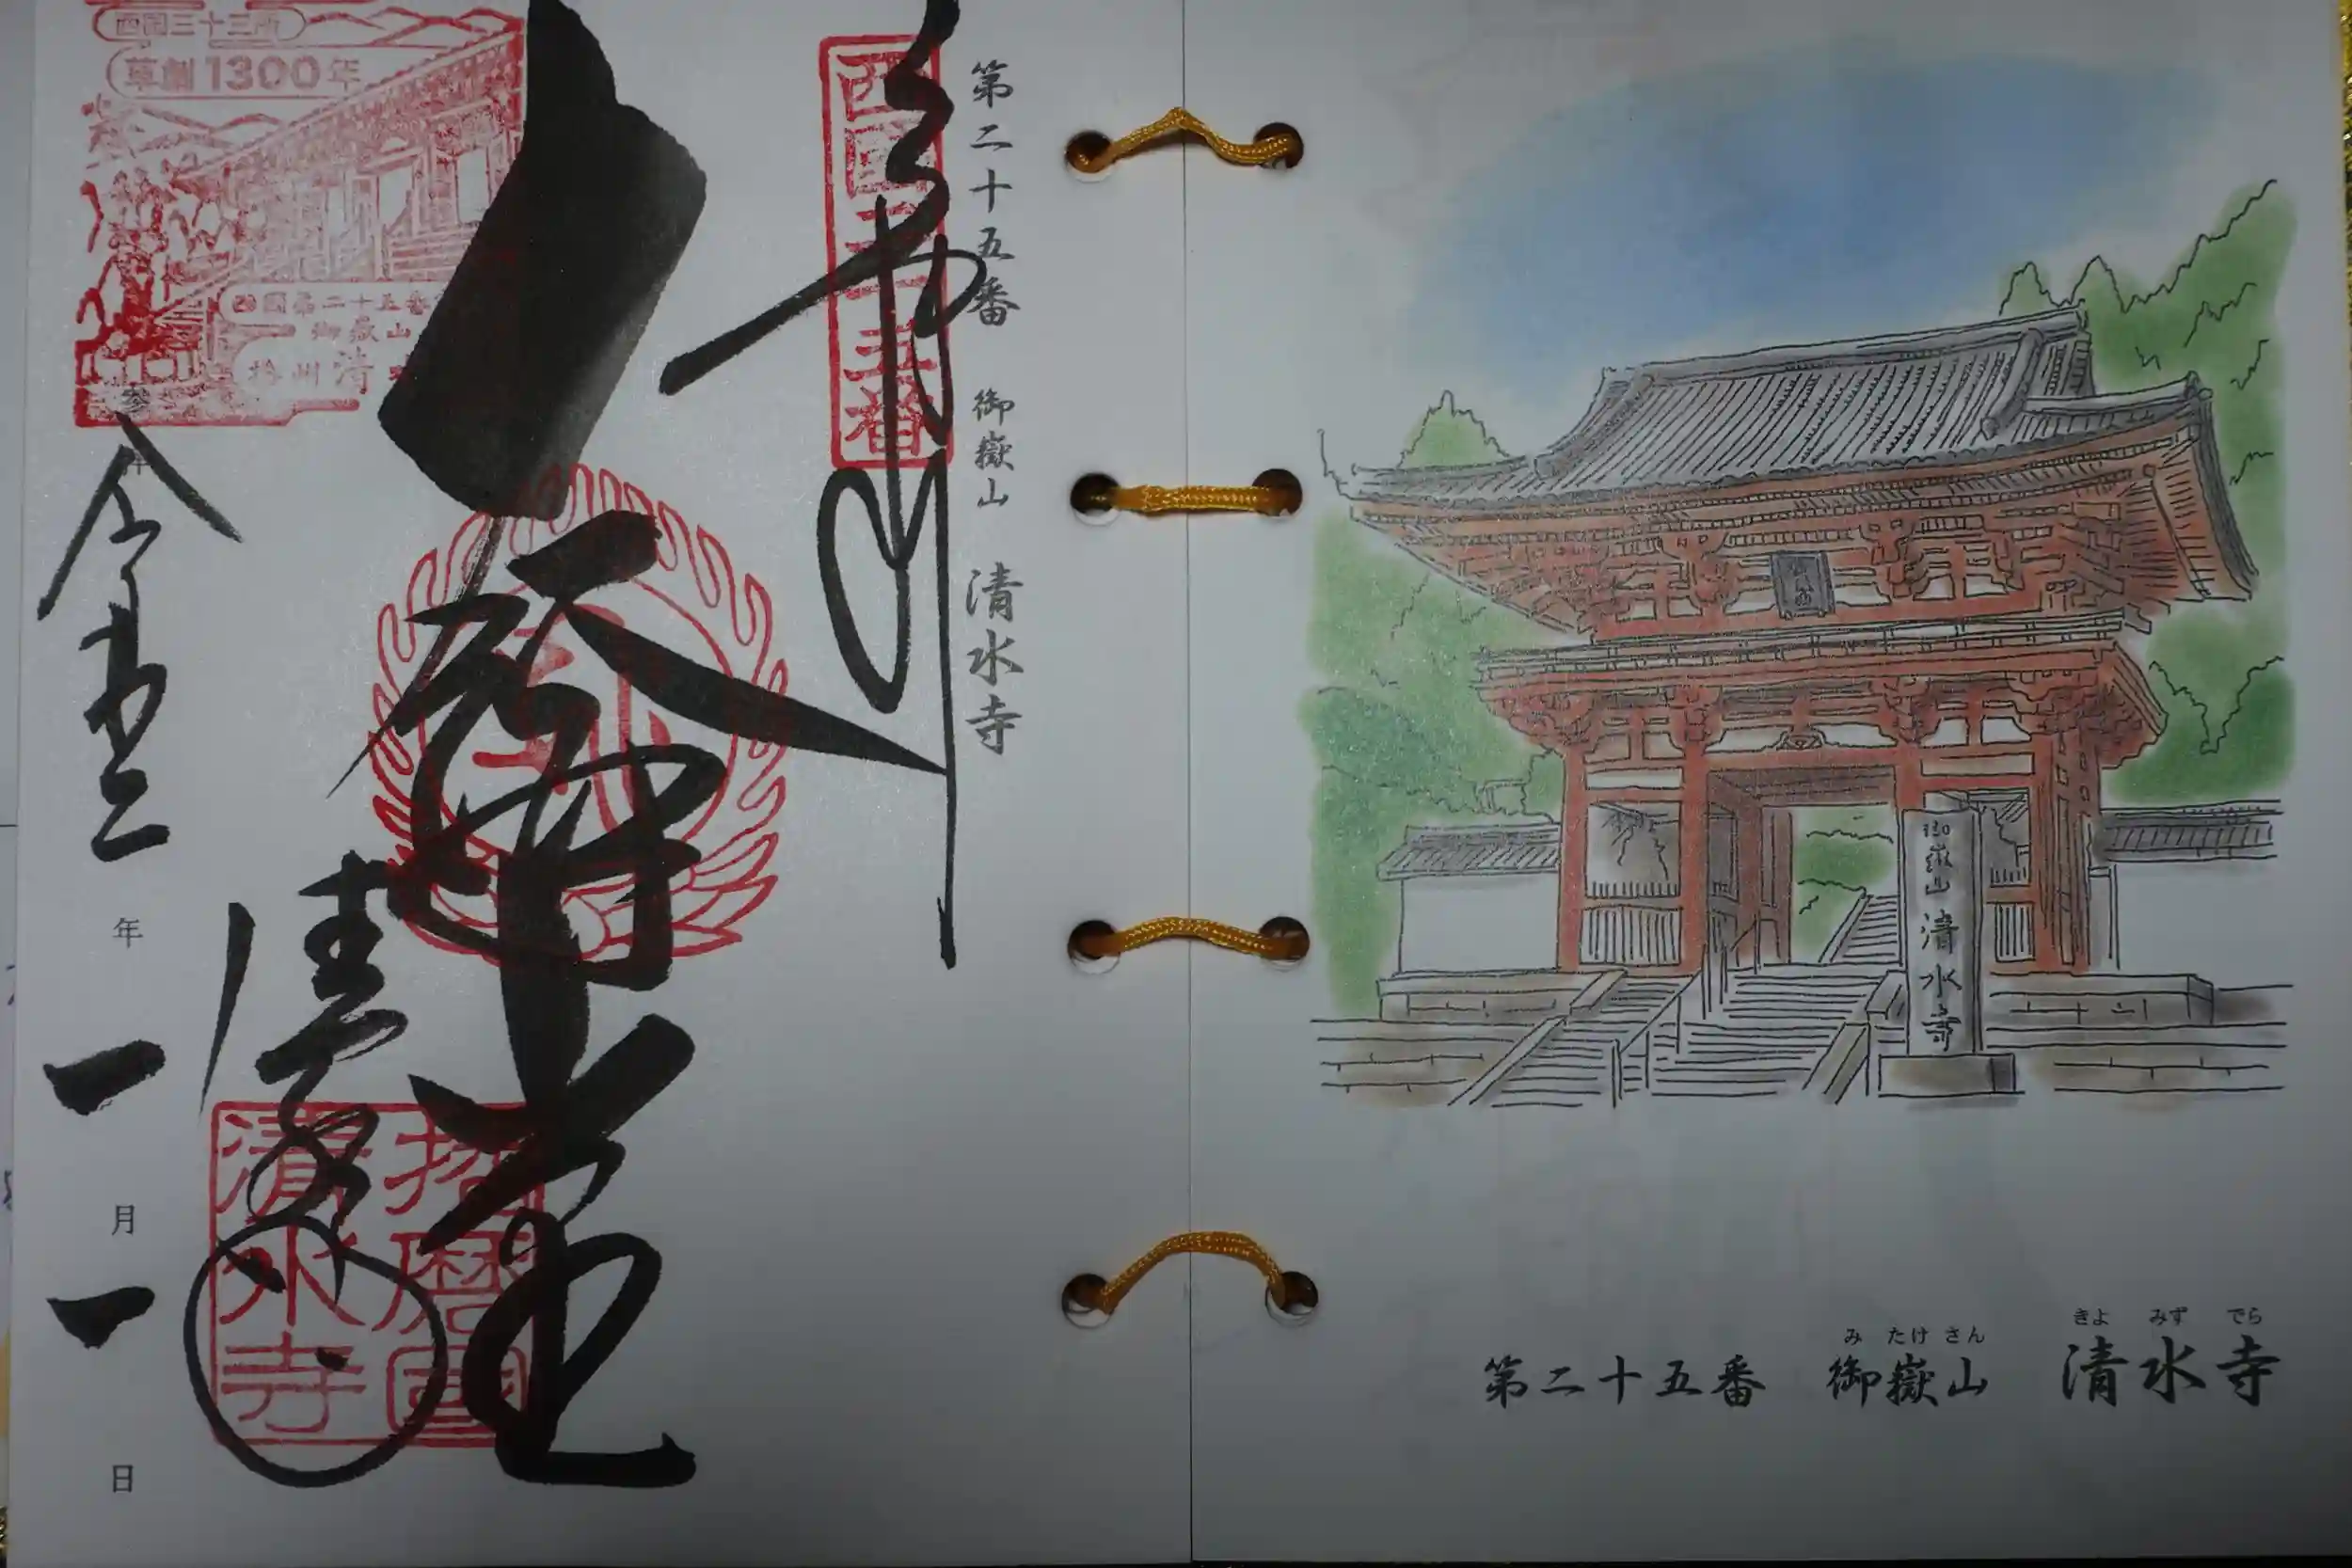 第二十五番 御嶽山 清水寺
奉拝
西國二十五番
大悲閣
清水寺
播磨國
清水寺
四国三十三所
草創1300年
西國第二十五番
御嶽山
播州清
令和二
年
一
月
一
日
御嶽山 清水寺
み たけ さん きよ みず でら
第二十五番 御嶽山 清水寺